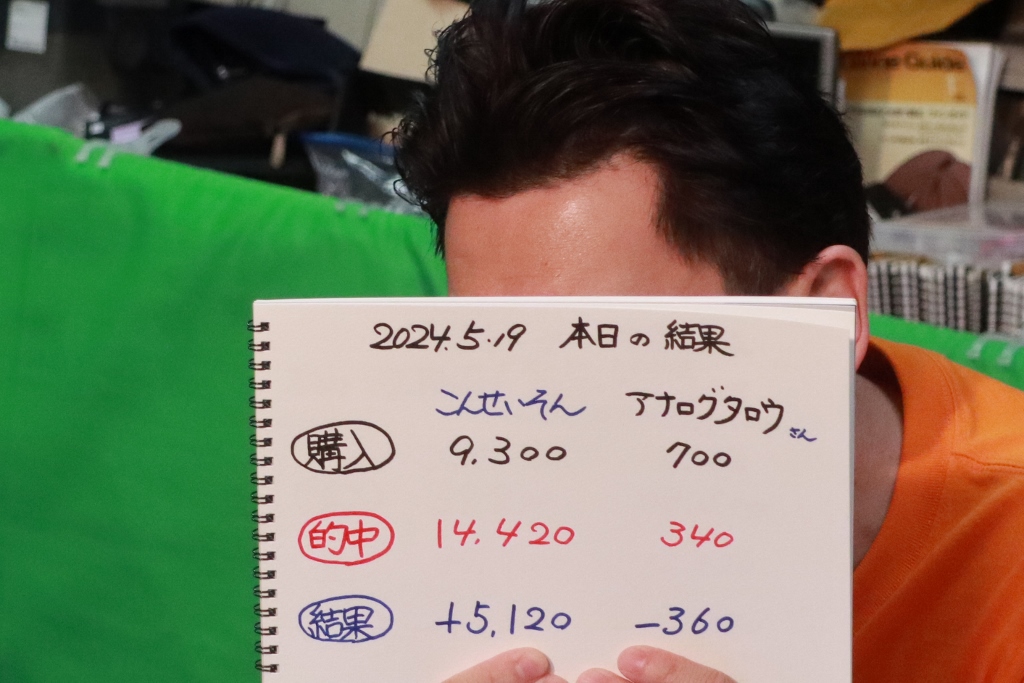 2024.5.19 本日の結果
こんせいそん アナログタロウさん
購入 9.300 700
的中 14.420 340
結果 +5,120 -360